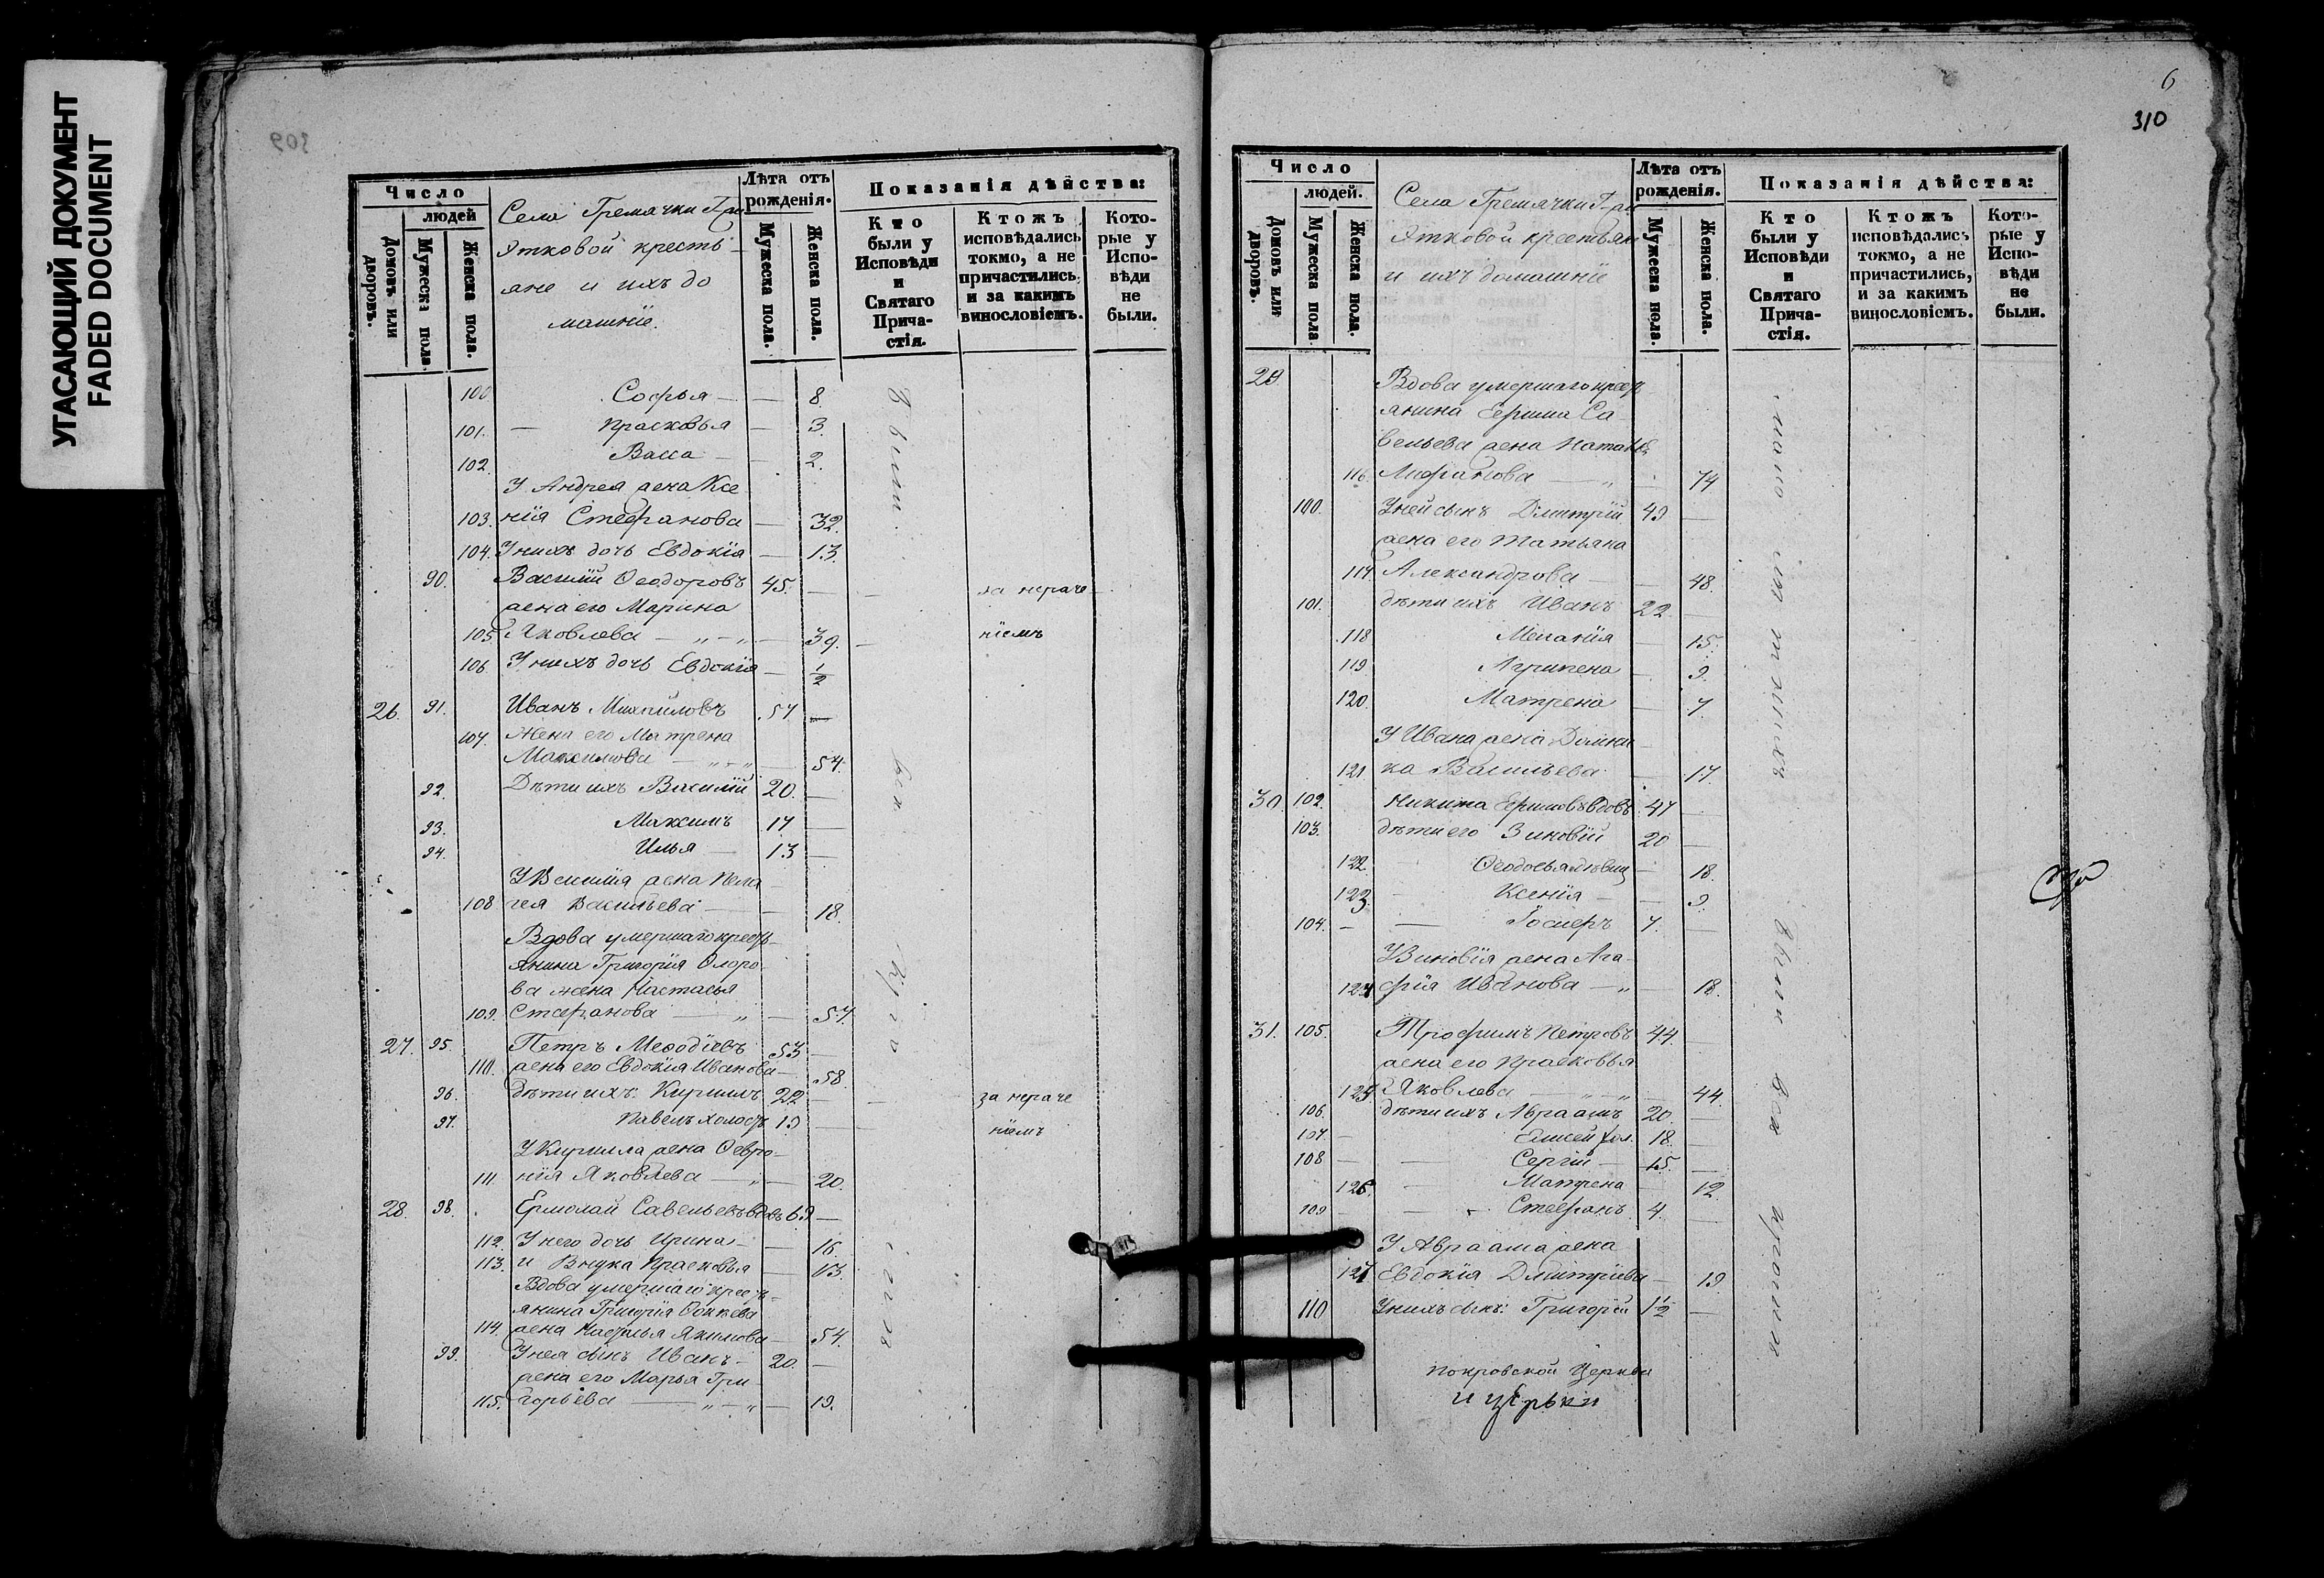 УГАСАЮЩИЙ ДОКУМЕНТ
FADED DOCUMENT
309
Число
людей
Домовъ или дворовъ.
Мужеска пола.
Женска пола.
Села Гремячки При
ятковой кресть
яне и ихъ до
машніе.
Лѣта отъ рожденія.
Мужеска пола.
Женска пола.
Показанія дѣйства:
Кто были у Исповѣди и Святаго Причастія.
Ктожъ исповѣдались токмо, а не причастились, и за какимъ винословіемъ.
Которые у Исповѣди не были.
100 Софья — 8.
101. — Прасковья — 3.
102. Васса — 2.
У Андрея жена Ксе
103. нія Стефанова — 32.
104. У нихъ дочь Евдокія — 13.
90. Василій Ѳеодоровъ 45. — за нераче
жена его Марина
105. Яковлева — 39. — ніемъ
106. У нихъ дочь Евдокія — 1/2
26. 91. Иванъ Михайловъ 57 —
107. Жена его Матрена
Максимова — 54.
92. Дѣти ихъ Василій 20. —
93. Максимъ 17 —
94. Илья — 13 —
У Василія жена Пела
108 гея Васильева — 18.
Вдова умершаго крест
янина Григорія Ѳедоро
ва жена Настасья
109. Стефанова — 57.
27. 95. Петръ Меѳодіевъ 53 —
110. жена его Евдокія Иванова — 58.
96. дѣти ихъ: Кирилъ 22 — за нераче
97. Павелъ холостъ 19 — ніемъ
У Кирилла жена Ѳевро
111. нія Яковлева — 20.
28. 98. Ермолай Савельевъ вдовъ 69 —
112. У него дочь Ирина — 16.
113. и Внука Прасковья — 13.
Вдова умершаго крест
янина Григорія
114. жена Настасья Якимова — 54.
99. У нея сынъ Иванъ — 20. —
жена его Марья Гри
115. горьева — 19.
6
310
Число
людей.
Домовъ или дворовъ.
Мужеска пола
Женска пола.
Села Гремячки При
ятковой крестьян
и ихъ домашніе
Лѣта отъ рожденія.
Мужеска пола.
Женска пола.
Показанія дѣйства:
Кто были у Исповѣди и Святаго Причастія.
Ктожъ исповѣдались токмо, а не причастились, и за какимъ винословіемъ.
Которые у Исповѣди не были.
29. Вдова умершаго крест
янина Ефима Са
вельева жена Наталья
116. — 74
100. У ней сынъ Димитрій 49 —
жена его Татьяна
117. Александрова — 48.
101. дѣти ихъ Иванъ 22 —
118 Меланія — 15.
119 Агрипена — 9.
120. Матрена — 7.
У Ивана жена Домни
121 ка Васильева — 17
30. 102. Никита Ефимовъ вдовъ 47 —
103. дѣти его Зиновій 20 —
122. Ѳеодосья дѣвиц — 18.
123. Ксенія — 9.
104. — 7. —
У Зиновія жена Ага
124 фія Иванова — 18.
31. 105. Трофимъ Петровъ 44 —
жена его Прасковья
125 Яковлева — 44.
106. дѣти ихъ Авраамъ 20. —
107. — Елисей хол. 18. —
108 — Сергій — 15. —
126. — Матрена — 12
109 — Стефанъ 4. —
У Авраама жена
127 Евдокія Дмитріева — 19
110 У нихъ сынъ: Григорій 1 1/2 —
Покровской Церкви